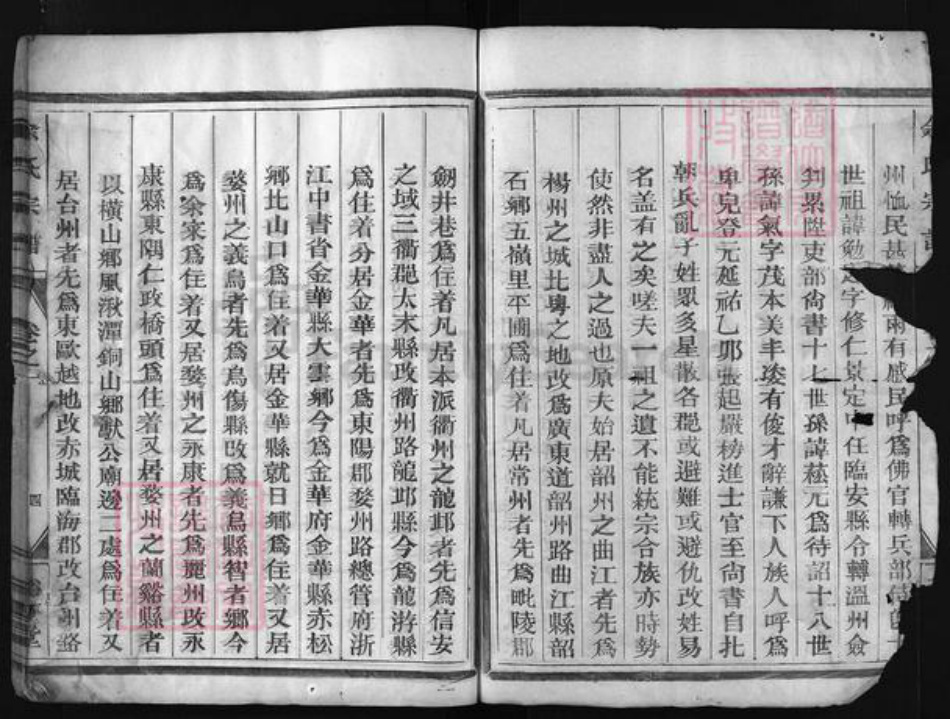 州恤民甚雨有感民呼為佛官轉兵部
世祖諱勉字修仁景定中任臨安縣令轉溫州僉
判累陞吏部尚書十七世孫諱菘元為待詔十八世
孫諱氣字茂本美丰姿有俊才辭謙下人族人人呼為
卑兒登元延祐乙夘張起嚴榜進士官至尚書自扎
朝兵亂子姓眾多星散各郡或避難或避仇改姓易
名盖有之矣嗟夫一祖之遺不能統宗合族亦時勢
使然非盡人之過也原夫始居韶州之曲江者先為
楊州之城比粤之地改為廣東道韶州路曲江縣韶
石鄉五嶺里平圃為住着凡居常州者先為毗陵郡
劒井巷為住着凡居本派衢州之龍邱者先為信安
之域三衢郡太末縣攺衢州路龍邱縣今為龍游縣
為住着分居金華者先為東陽郡婺州路總管府浙
江中書省金華縣大雲鄉今為金華府金華縣赤松
鄉比山口為住着又居金華縣就日鄉為住着又居
婺州之義烏者先為烏傷縣攺為義烏縣智者鄉今
為余家為住着又居婺州之永康者先為麗州攺永
康縣東隅仁政橋頭為住着又居婺州之蘭谿縣者
以橫山鄉風湫潭銅山鄉獻公廟邊二處為住着又
居台州者先為東歐越地改赤城臨海郡改台州路
余氏宗譜
卷之
四
堂